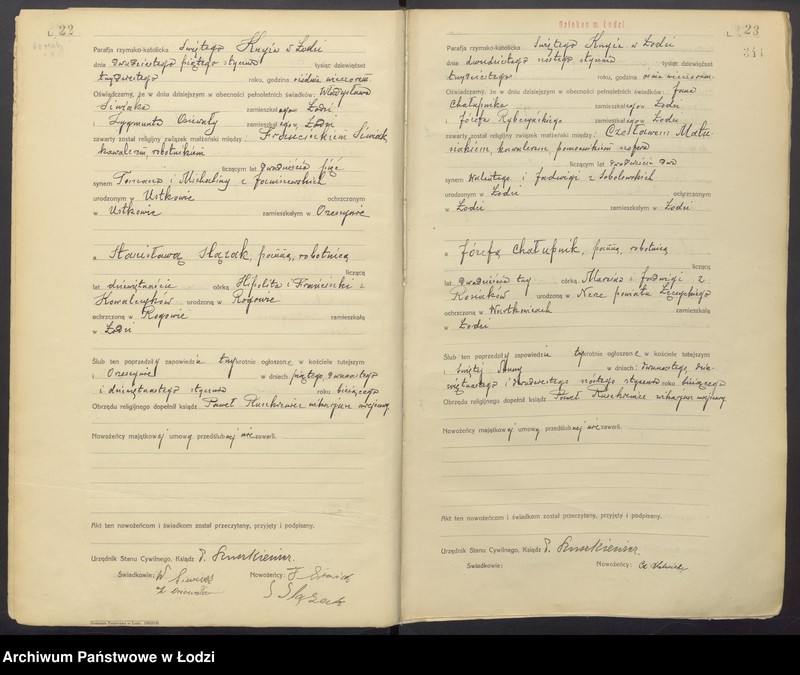 22
Parafja rzymsko-katolicka Świętego Krzyża w Łodzi
dnia dwudziestego piątego stycznia tysiąc dziewięćset
trzydziestego roku, godzina siódma wieczorem
Oświadczamy, że w dniu dzisiejszym w obecności pełnoletnich świadków: Władysława
Siwiaka zamieszkałego w Łodzi
i Zygmunta zamieszkałego w Łodzi
zawarty został religijny związek małżeński między: Franciszkiem Siwiak,
kawalerem, robotnikiem
liczącym lat dwadzieścia pięć
synem Tomasza i Michaliny z
urodzonym w Ustkowie ochrzczonym
w Ustkowie zamieszkałym w Orzeszynie
a Stanisławą Ślązak, panną, robotnicą
liczącą
lat dziewiętnaście córką Hipolita i Franciszki z
Kowalczyków urodzoną w Rogowie
ochrzczoną w Rogowie zamieszkałą
w Łodzi
Ślub ten poprzedziły zapowiedzie trzykrotnie ogłoszone, w kościele tutejszym
i w dniach: piątego, dwunastego
i dziewiętnastego stycznia roku bieżącego
Obrzędu religijnego dopełnił ksiądz Paweł Ruszkiewicz wikarjusz miejscowy
Nowożeńcy majątkowej umowy przedślubnej nie zawarli.
Akt ten nowożeńcom i świadkom został przeczytany, przyjęty i podpisany.
Urzędnik Stanu Cywilnego, Ksiądz
Świadkowie: Nowożeńcy: F Siwiak
S Ślązak
23
341
Parafja rzymsko-katolicka Świętego Krzyża w Łodzi
dnia dwudziestego szóstego stycznia tysiąc dziewięćset
trzydziestego roku, godzina ósma wieczorem
Oświadczamy, że w dniu dzisiejszym w obecności pełnoletnich świadków: Jana
Chałupnika zamieszkałego w Łodzi
i Józefa Rybczyńskiego zamieszkałego w Łodzi
zawarty został religijny związek małżeński między: Czesławem Matu
siakiem, kawalerem, pomocnikiem szofera
liczącym lat dwadzieścia dwa
synem Walentego i Jadwigi z Sobolewskich
urodzonym w Łodzi ochrzczonym
w Łodzi zamieszkałym w Łodzi
a Józefą Chałupnik, panną, robotnicą
liczącą
lat dwadzieścia trzy córką Marcina i Jadwigi z
Rosiaków urodzoną w Nerze powiatu Łęczyckiego
ochrzczoną w Wartkowicach zamieszkałą
w Łodzi
Ślub ten poprzedziły zapowiedzie trzykrotnie ogłoszone, w kościele tutejszym
i Świętej Anny w dniach: dwunastego, dzie-
więtnastego i dwudziestego szóstego stycznia roku bieżącego
Obrzędu religijnego dopełnił ksiądz Paweł Ruszkiewicz wikarjusz miejscowy
Nowożeńcy majątkowej umowy przedślubnej nie zawarli.
Akt ten nowożeńcom i świadkom został przeczytany, przyjęty i podpisany.
Urzędnik Stanu Cywilnego, Ksiądz
Świadkowie: Nowożeńcy:
Archiwum Państwowe w Łodzi